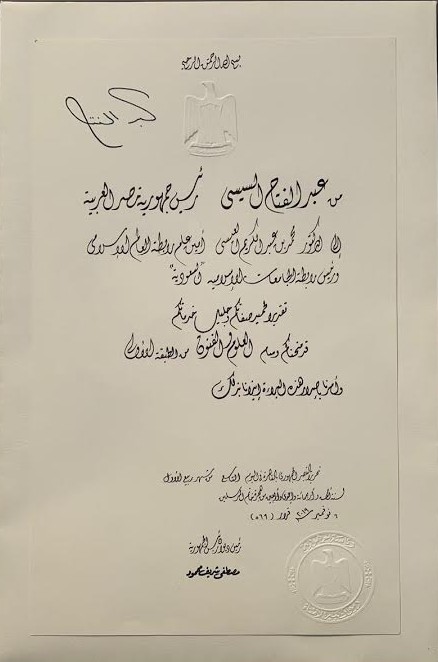 بسم الله الرحمن الرحيم
عبد الفتاح
من عبد الفتاح السيسى رئيس جمهورية مصر العربية
إلى الدكتور محمد بن عبد الكريم العيسى أمين عام رابطة العالم الإسلامى
ورئيس رابطة الجامعات الإسلامية "السعودية"
تقديرا لحميد صفاتكم وجليل خدماتكم
قد منحناكم وسام العلوم والفنون من الطبقة الأولى
وأمرنا بإصدار هذه البراءة إيذانا بذلك
تحريرا بالقصر الجمهورى بالقاهرة فى اليوم التاسع من شهر ربيع الأول
لسنة ألف وأربعمائة وإحدى وأربعين من هجرة خاتم المرسلين
٦ نوفمبر ٢٠١٩ قرار (٥٦٩)
رئيس ديوان رئيس الجمهورية
مصطفى شريف محمود